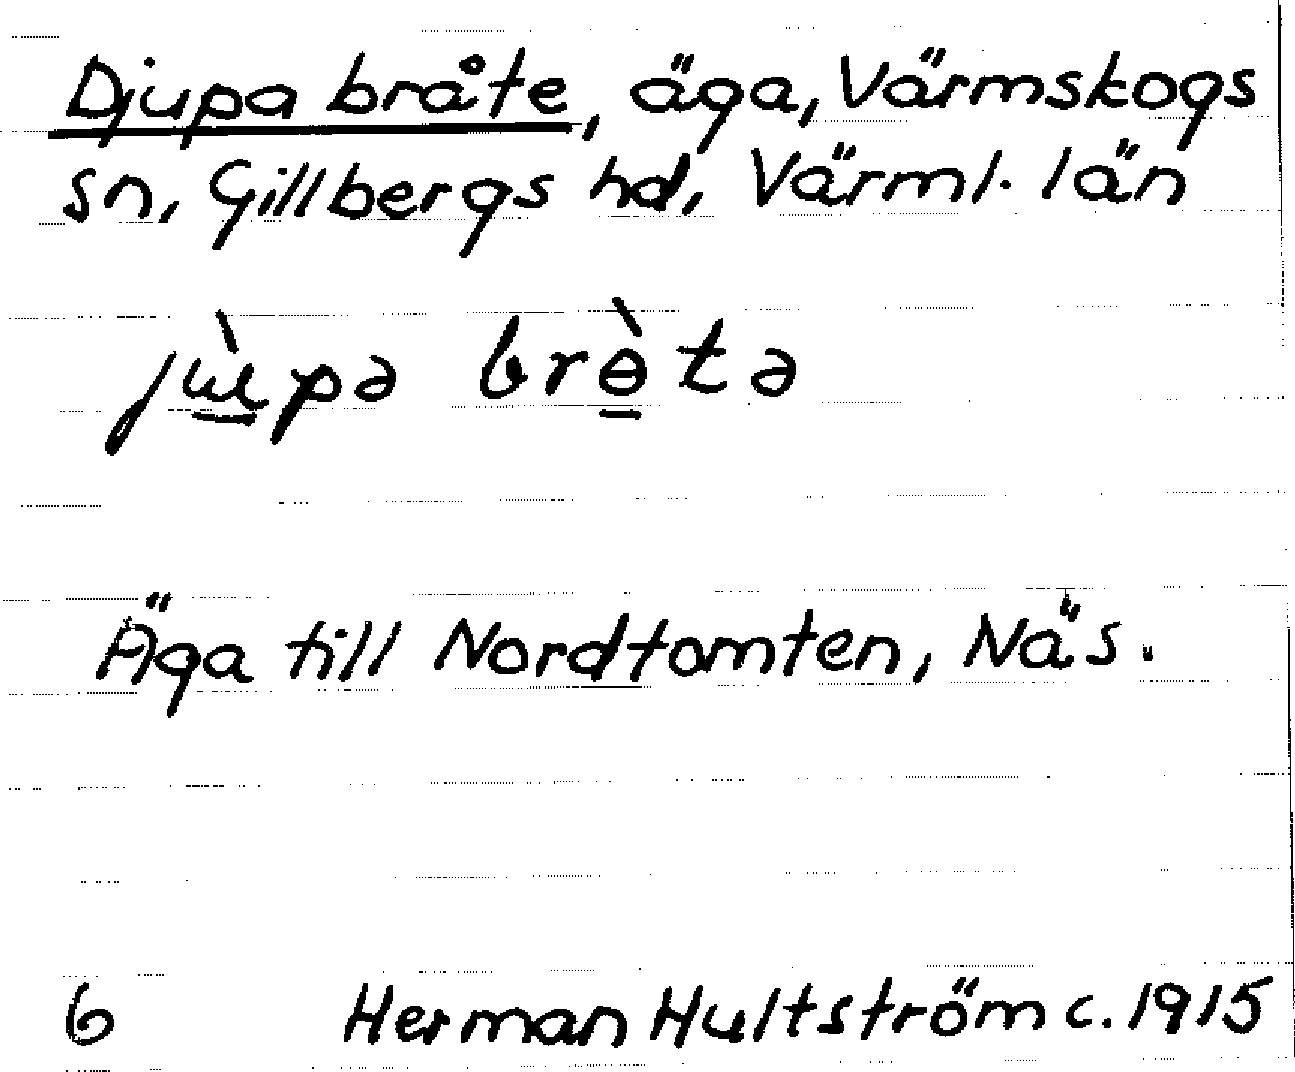 Djupa bråte, äga, Värmskogs
sn, Gillbergs hd, Värml. län
jɯ̲̀pə brɵ̲̀tə
Äga till Nordtomten, Näs.
6 Herman Hultström c. 1915